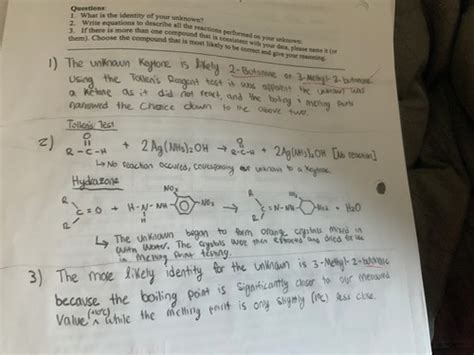 Questions:
1. What is the identity of your unknown?
2. Write equations to describe all the reactions performed on your unknown.
3. If there is more than one compound that is consistent with your data, please name it (or
them). Choose the compound that is most likely to be correct and give your reasoning.
1) The unknown Keytone is likely 2-Butanone or 3-Methyl-2-butanone
Using the Tollen's Reagent test it was apparent the unknown was
a ketone as it did not react, and the boiling + melting points
narrowed the choice down to the above two.
Tollen's Test
2) R-C-H + 2Ag(NH3)2OH → R-C-H + 2Ag(NH3)2OH [No reaction]
O O
↳ No reaction occured, unknown to a Keytone.
Hydrazone
R NO2 R NO2
C=O + H-N-NH- -NO2 → C=N-NH- + H2O
R H R
↳ The unknown began to form orange crystals mixed in
with water. The crystals were then extracted and dried for use
in melting point testing.
3) The more likely identity for the unknown is 3-Methyl-2-butanone
because the boiling point is significantly closer to our measured
Value, while the melting point is only slightly (1°C) less close.